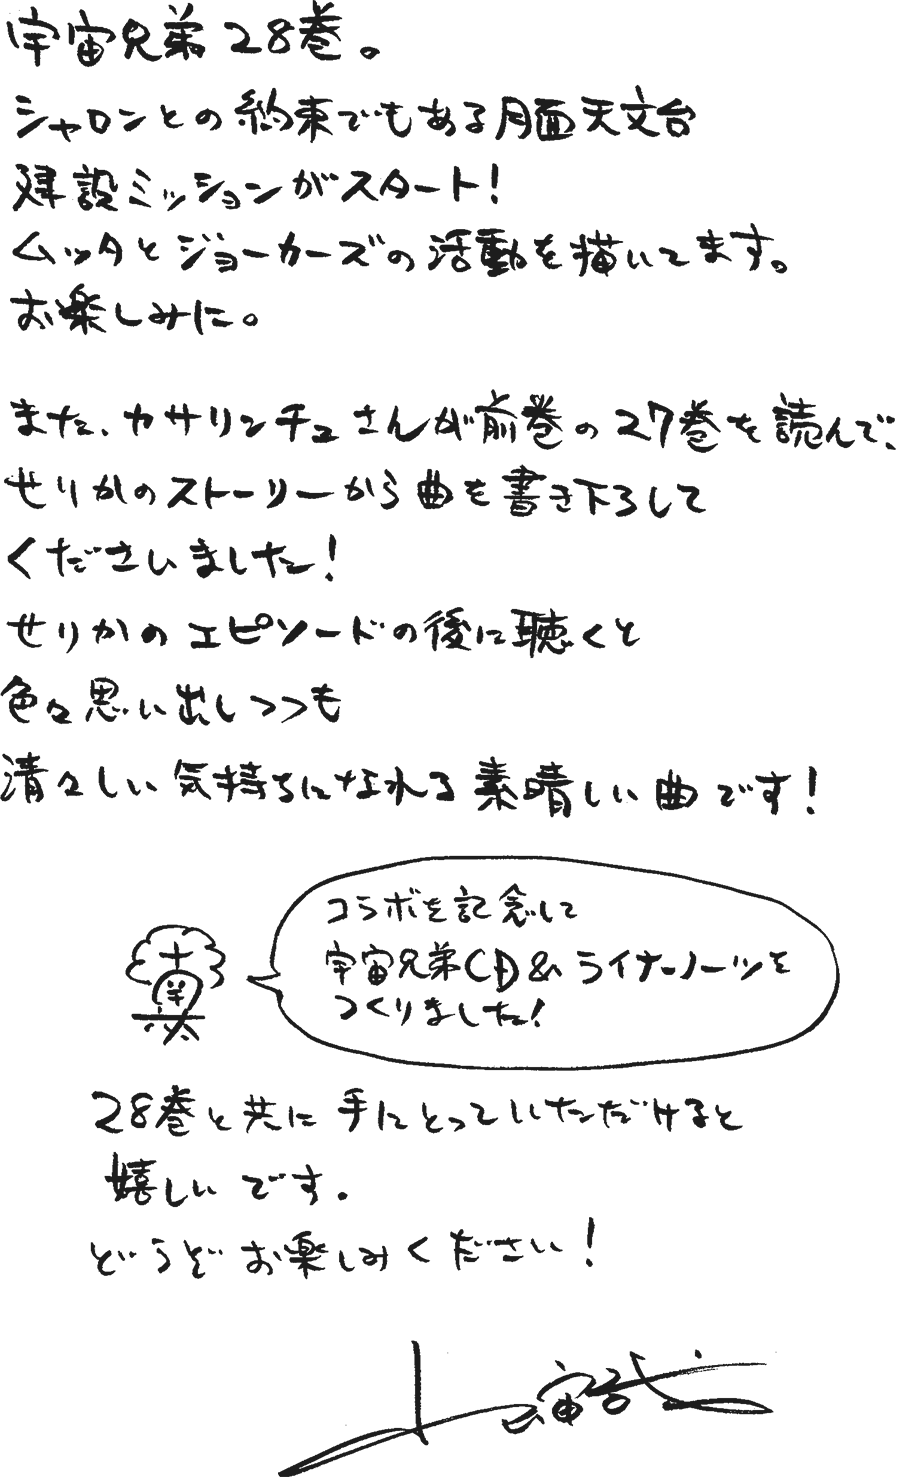 宇宙兄弟28巻。
シャロンとの約束でもある月面天文台
建設ミッションがスタート!
ムッタとジョーカーズの活動を描いてます。
お楽しみに。
また、カサリンチュさんが前巻の27巻を読んで、
せりかのストーリーから曲を書き下ろして
くださいました!
せりかのエピソードの後に聴くと
色々思い出しつつも
清々しい気持ちになれる素晴しい曲です!
コラボを記念して
宇宙兄弟CD&ライナーノーツを
つくりました!
28巻と共に手にとっていただけると
嬉しいです.
どうぞお楽しみください!